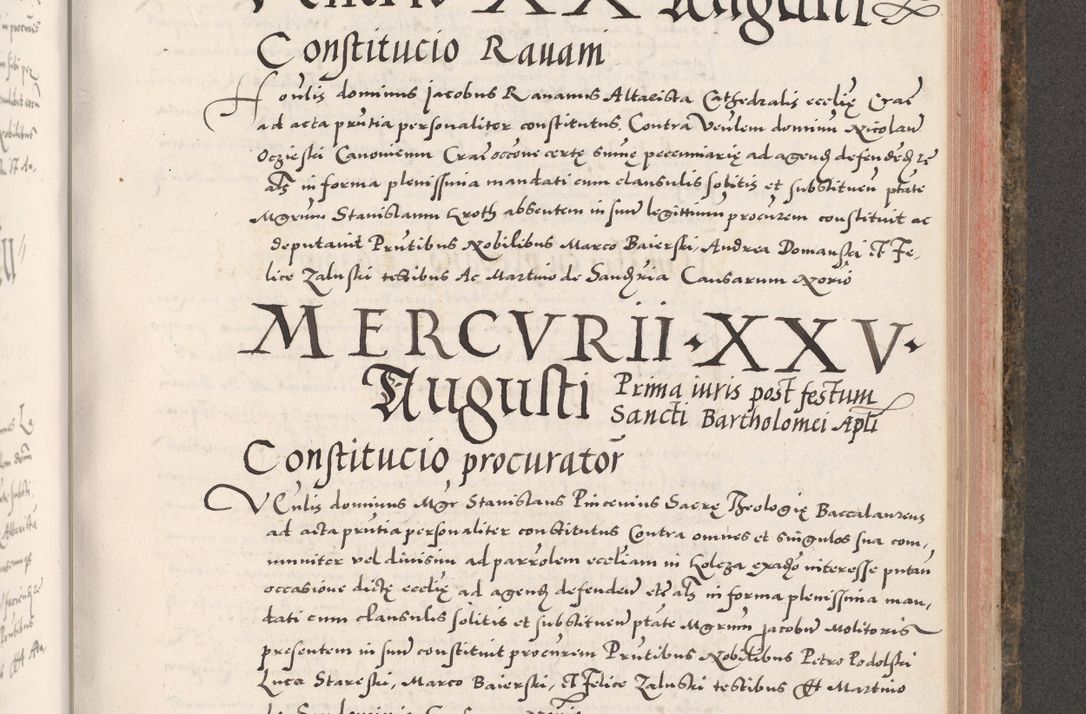 Veneris XX Augusti
Constitucio Rauam
Honlis dominus Jacobus Rauamus Altarista Cathedralis ecclię Craĉ
ad acta prntia personaliter constitutus. Contra Venlem dominū Nicolaū
Oczieski Canonicum Craĉ occone certę summę peccuniarię ad agend defendēd zc̄
als in forma plenissima mandati cum clausulis solitis et substituen ptate
Mgrum Stanislaum Kroth absentem in suū legittimū procurem constituit ac
deputauit Prntibus Nobilibus Marco Baierski, Andrea Domanski Et Fe,
lice Zaluski testibus Ac Martino de Sandria Causarum Norio
MERCVRII · XXV ·
Augusti Prima iuris post festum
Sancti Bartholomei Apli
Constitucio procurator
Venlis dominus Mgr Stanislaus Pincenius Sacrę Theologię Baccalaureus
ad acta prntia personaliter constitutus Contra omnes et singulos sua com,
muniter vel diuisim ad parrolem eccliam in Koleza interesse putan
occasione dictę ecclię ad agend defenden etc als in forma plenissima man,
dati cum clausulis solitis et substituen ptate Mgrum Jacobū Molitoris
presentem in suū constituit procurem Prntibus Nobilibus Petro Podolski
Luca Stareski, Marco Baierski, Et Felice Zaluski testibus Et Martino